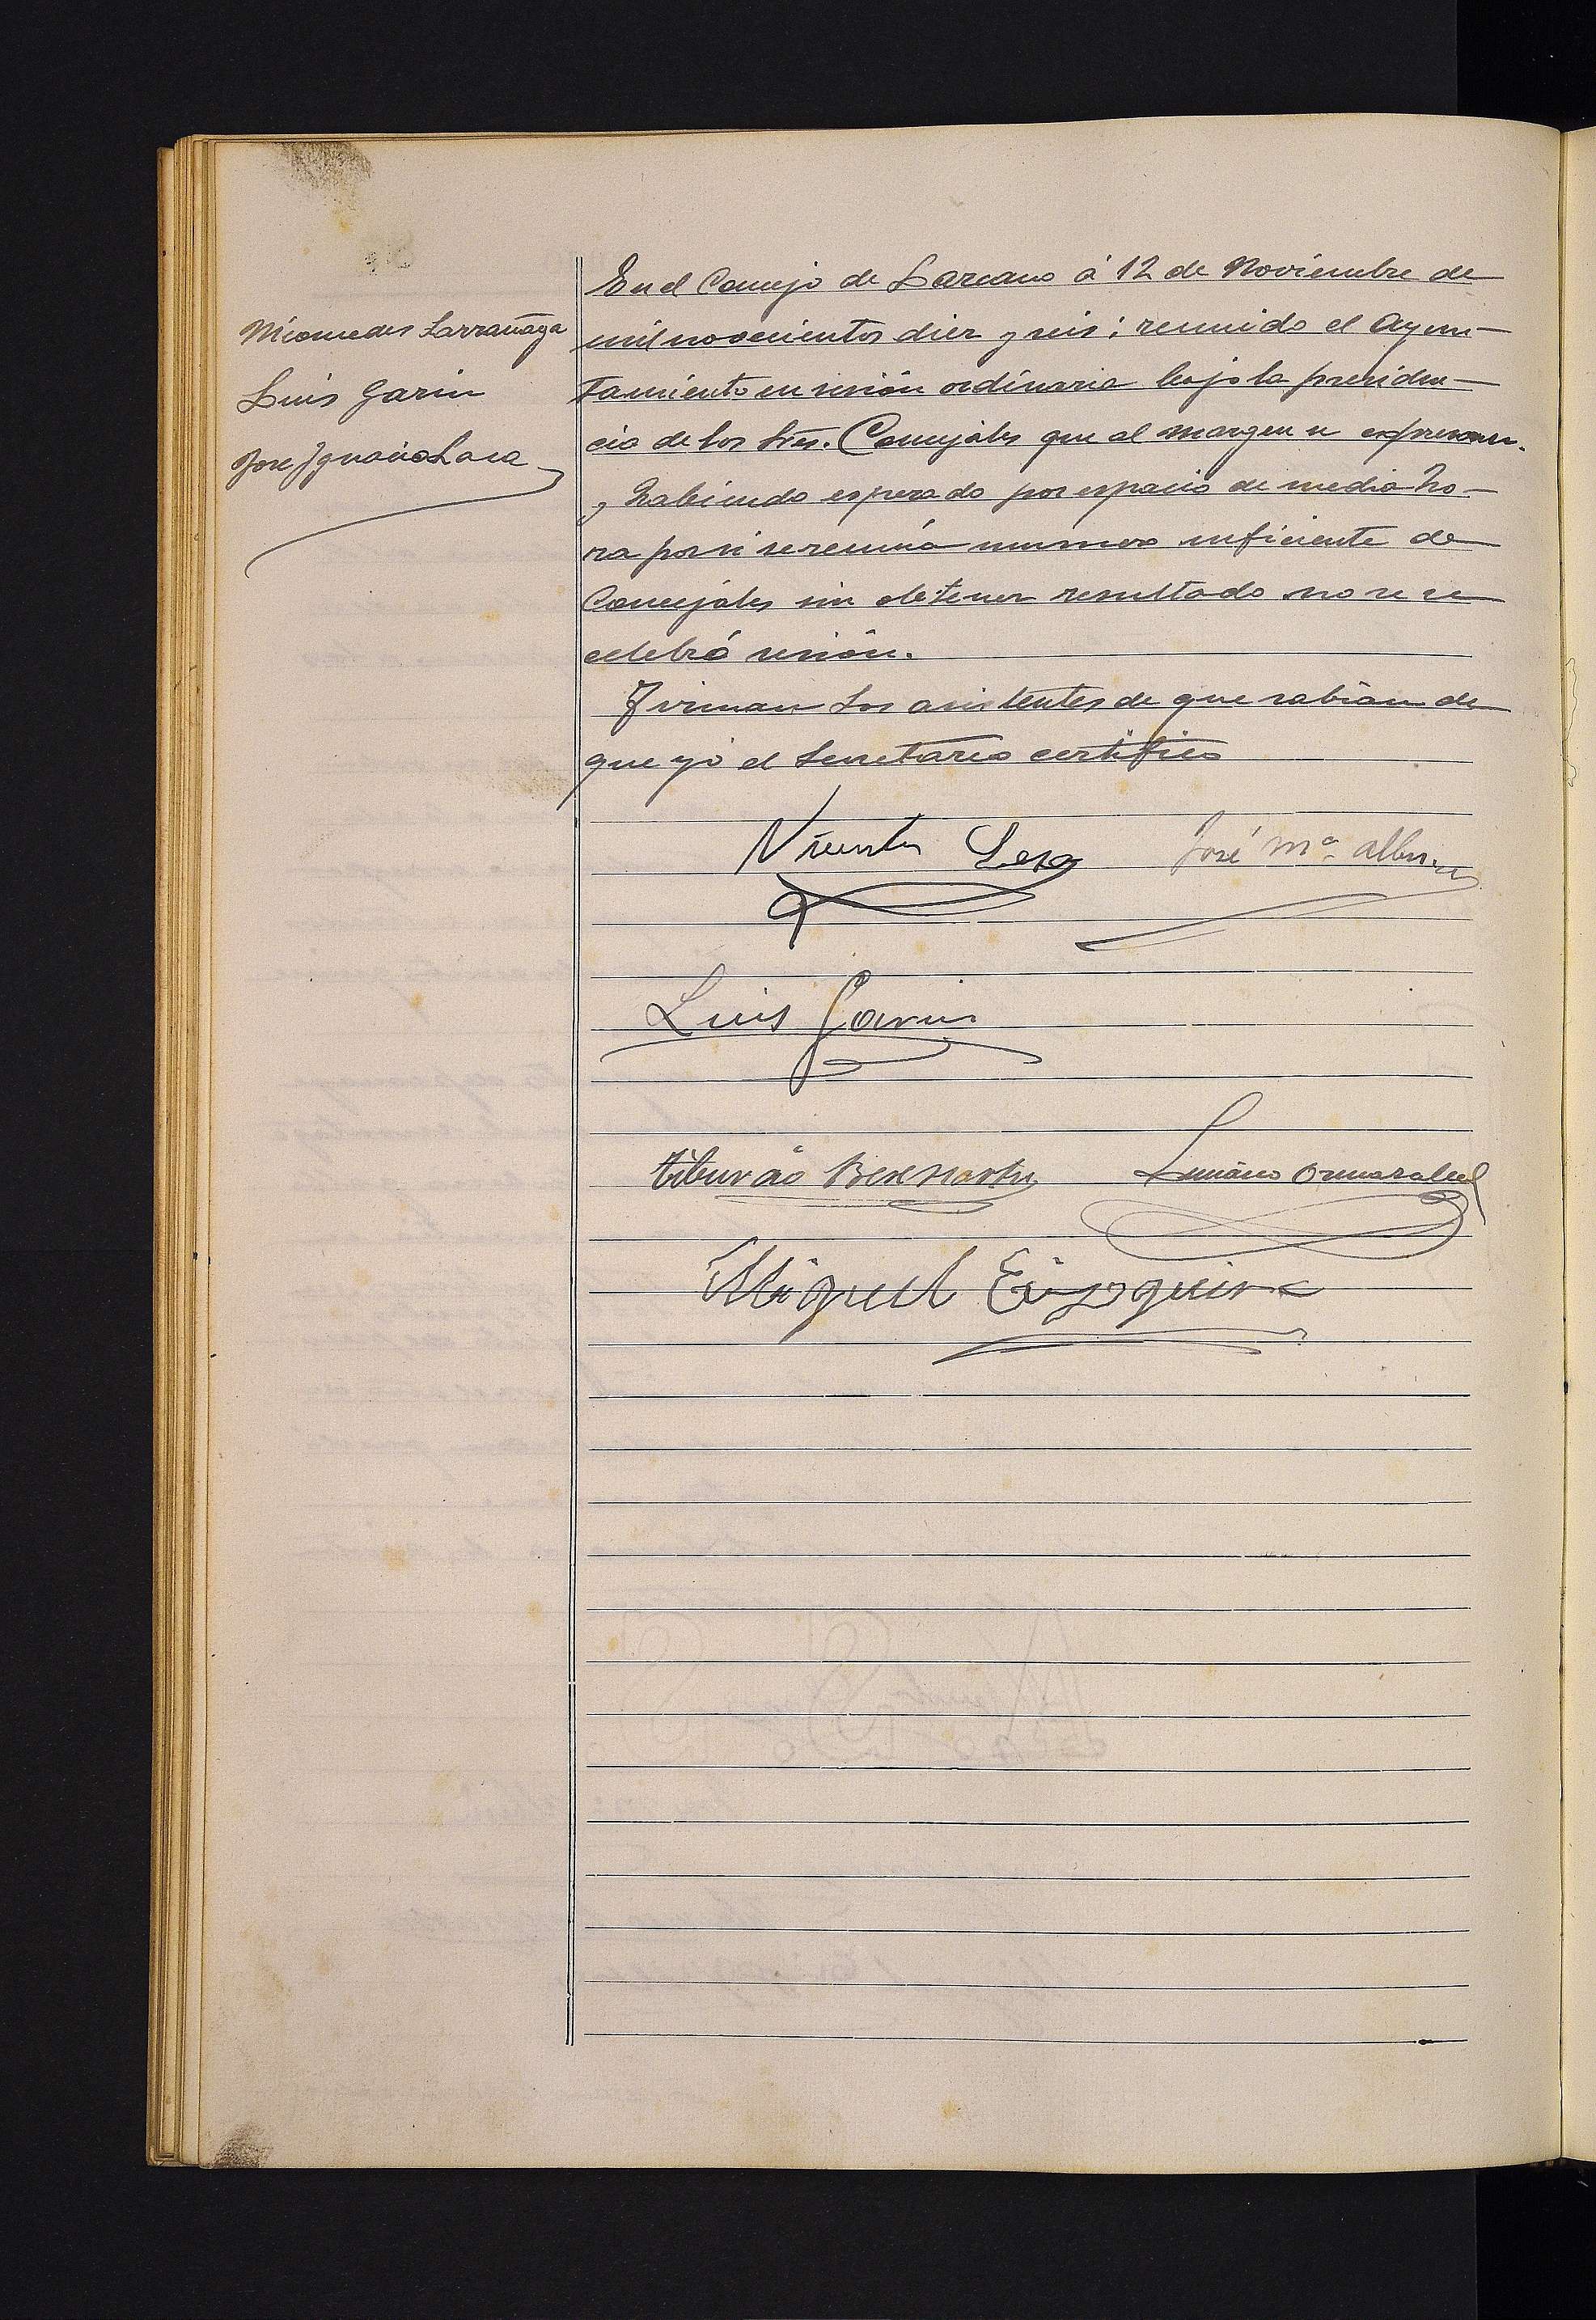 Nicomedes Larrañaga
Luis Garin
Jose Ignacio Lasa
En el Concejo de Lazcano á 12 de Noviembre de
mil novecientos diez y seis; reunido el Ayun-
tamiento en sesión ordinaria bajo la presiden-
cia de los Sres. Concejales que al margen se expresan.
y habiendo esperado por espacio de media ho-
ra por si se reunía numero suficiente de
Concejales sin obtener resultado no se se
celebró sesión.
Firman los asistentes de que sabían de
que yó el Secretario certifico
Vicente Lasa José Mª
Luis Garin
Tiburcio
Miguel Eizaguirre